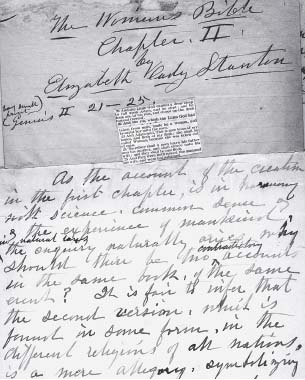 The Woman's Bible
Chapter. II
by
Elizabeth Cady Stanton
Genesis II 21–25.
As the account of the creation
in the first chapter, is in harmony
with science, common sense, &
the experience of mankind in
natural laws
the enquiry naturally arises, why
should there be two contradictory accounts
in the same book, of the same
event? It is fair to infer that
the second version, which is
found in some form, in the
different religions of all nations,
is a mere allegory, symbolizing